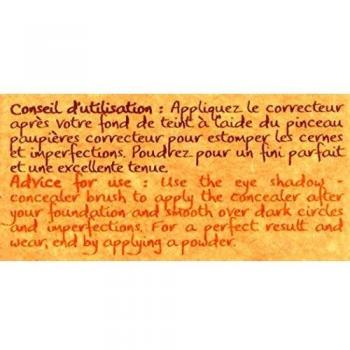 Conseil d'utilisation : Appliquez le correcteur
après votre fond de teint à l'aide du pinceau
paupières correcteur pour estomper les cernes
et imperfections. Poudrez pour un fini parfait
et une excellente tenue.
Advice for use : Use the eye shadow -
concealer brush to apply the concealer after
your foundation and smooth over dark circles
and imperfections. For a perfect result and
wear, end by applying a powder.